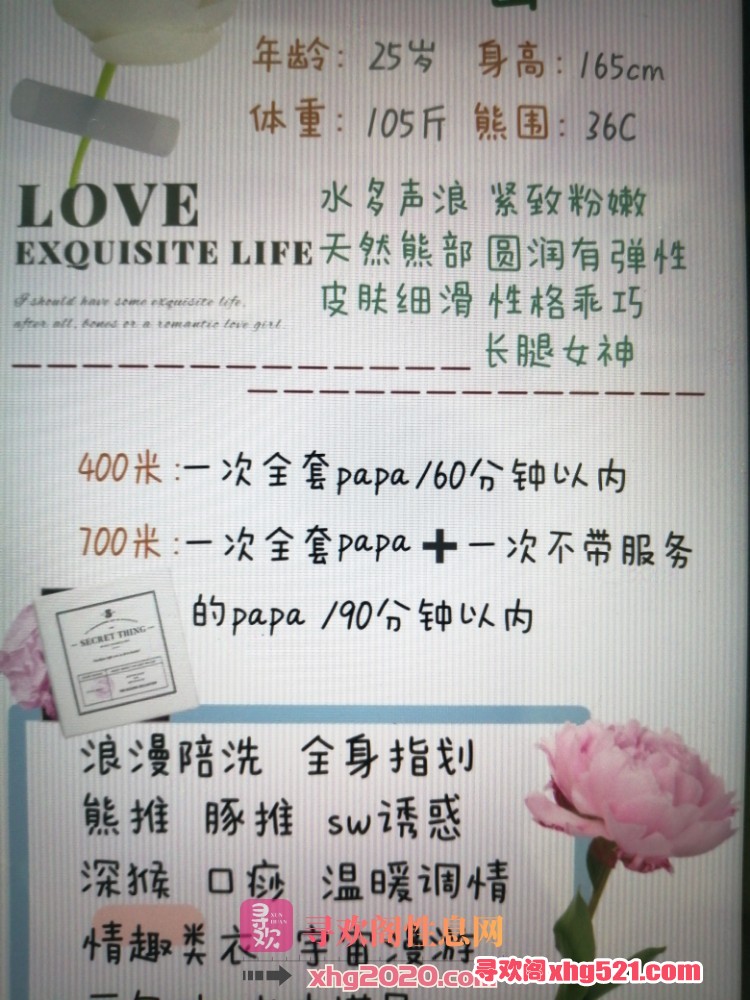 年龄：25岁 身高：165cm
体重：105斤 熊围：36C
LOVE
EXQUISITE LIFE
I should have some exquisite life.
after all, bones or a romantic love girl.
水多声浪 紧致粉嫩
天然熊部 圆润有弹性
皮肤细滑 性格乖巧
长腿女神
400米：一次全套papa/60分钟以内
700米：一次全套papa➕一次不带服务
的papa /90分钟以内
SECRET THING
浪漫陪洗 全身指划
熊推 豚推 sw诱惑
深猴 口痧 温暖调情
情趣类衣 宇宙漫游
寻欢
XUN HUAN
寻欢阁性息网
xhg2020.com
寻欢阁xhg521.com